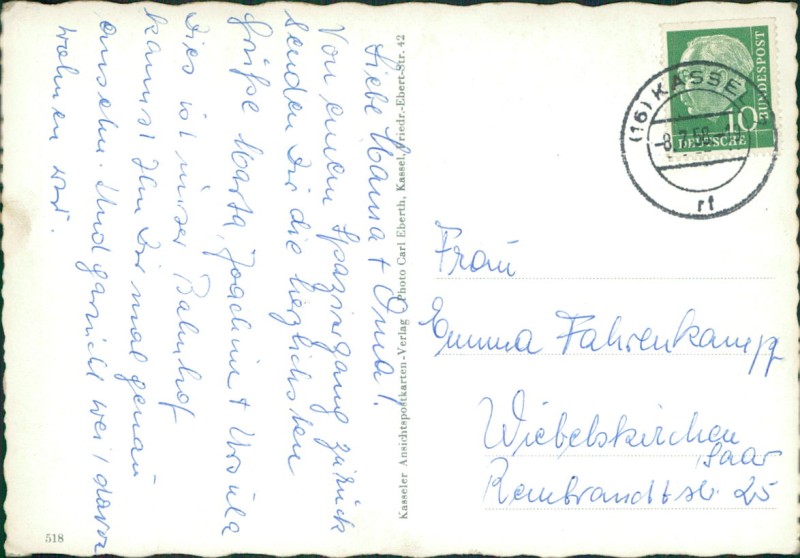 Liebe Mama + Oma!
Von einem Spaziergang zurück
senden Dir die herzlichsten
Grüße Marta, Joachim + Ursula
Dies ist unser Bahnhof
kannst ihn Dir mal genau
ansehn. Und garnicht weit davon
wohnen wir.
518
Kasseler Ansichtspostkarten-Verlag Photo Carl Eberth, Kassel, Friedr.-Ebert-Str. 42
(16) KASSEL
-8.7.58
rf
10
DEUTSCHE
BUNDESPOST
Frau
Emma Fahrenkampf
Wiebelskirchen
Saar
Rembrandtstr. 25